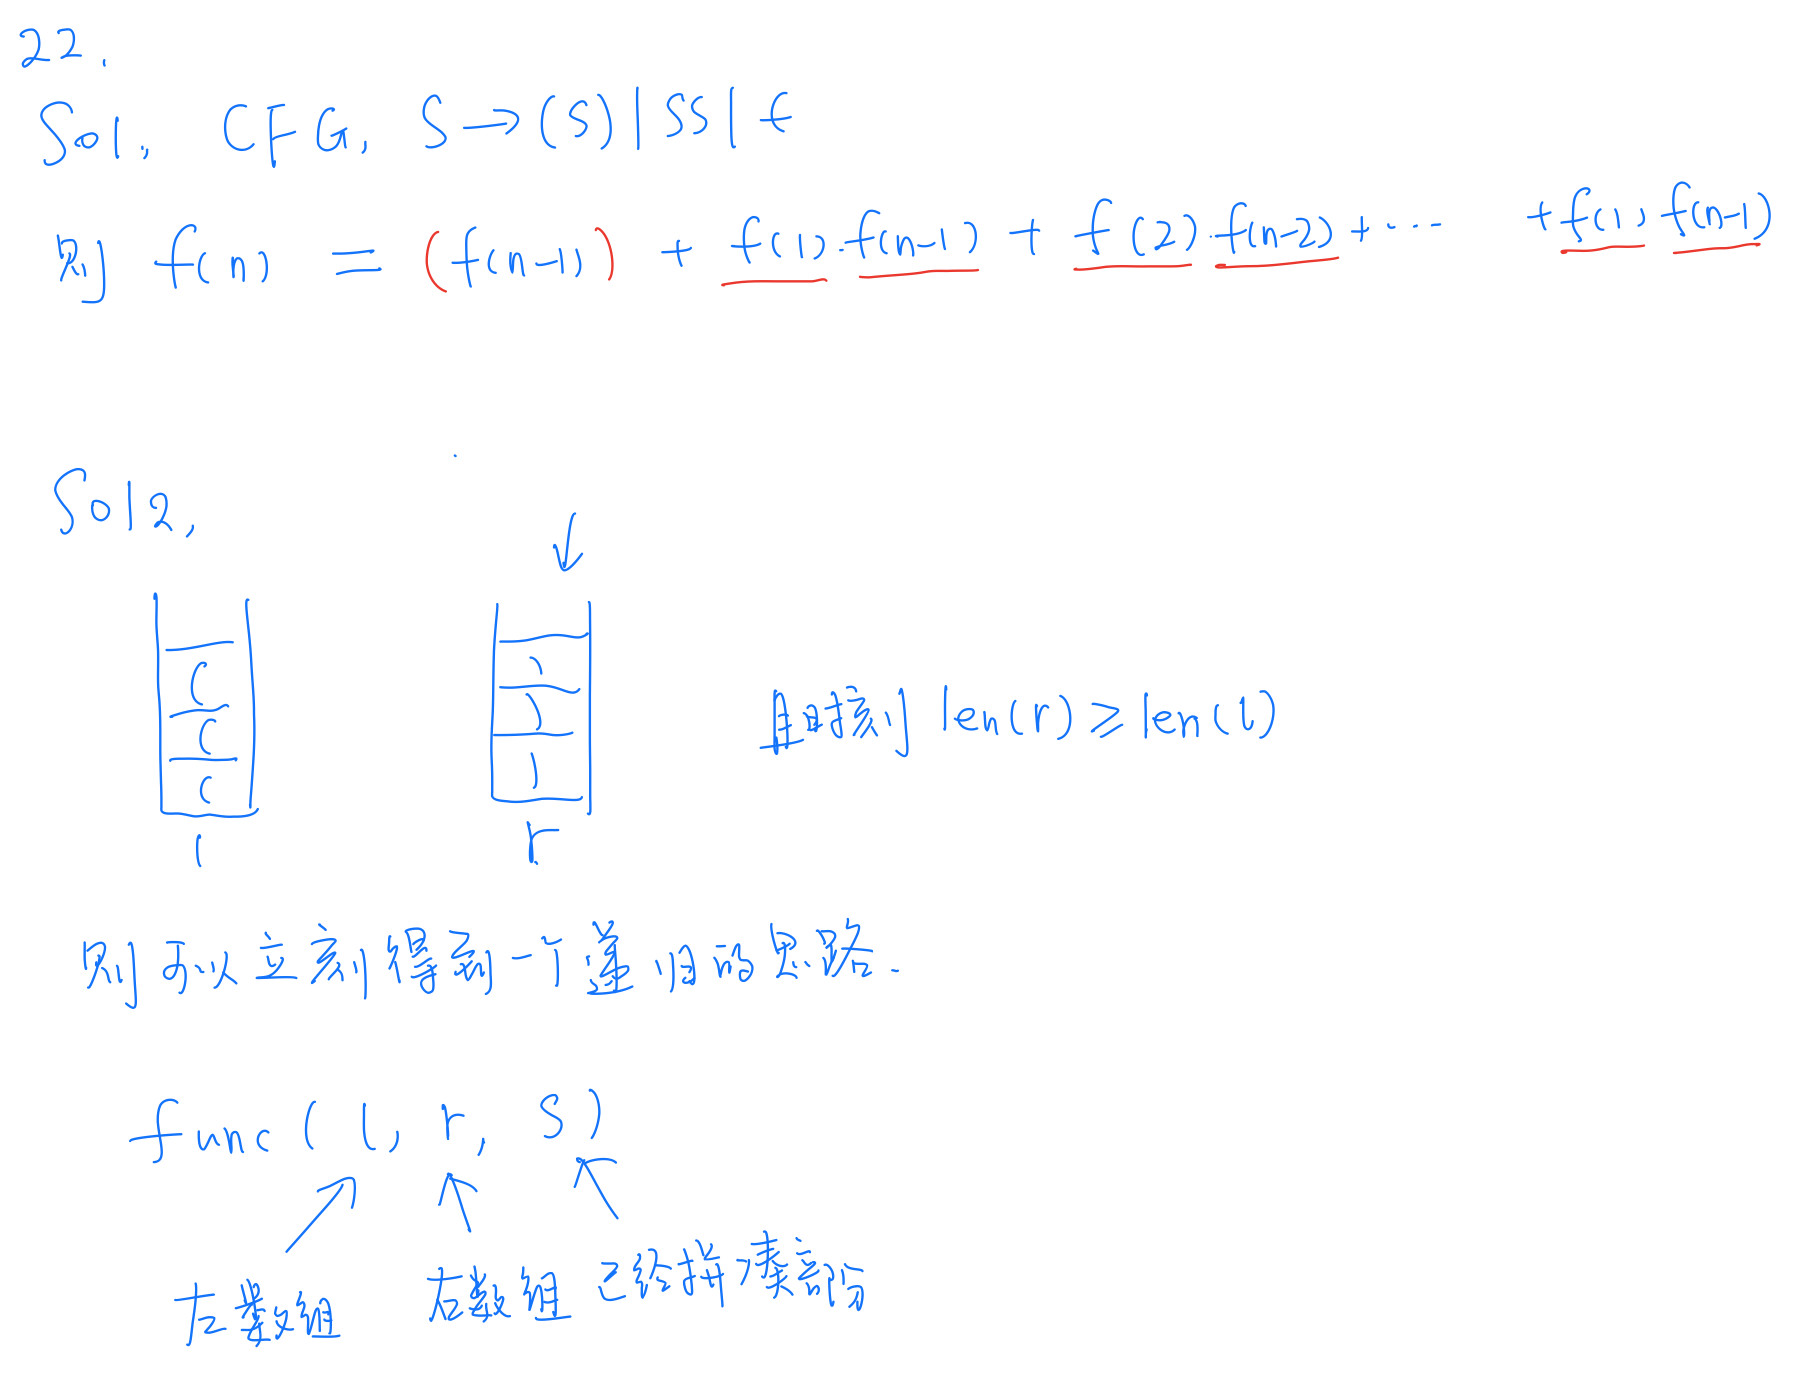 22.
Sol1, CFG, S→(S)|SS|ϵ
则 f(n) = (f(n-1)) + f(1)·f(n-1) + f(2)·f(n-2) + ··· + f(1) f(n-1)
Sol2,
( )
( )
( )
l r
且时刻 len(r) ≥ len(l)
则可以立刻得到一个递归的思路.
func( l, r, S)
左数组 右数组 已经拼凑部份